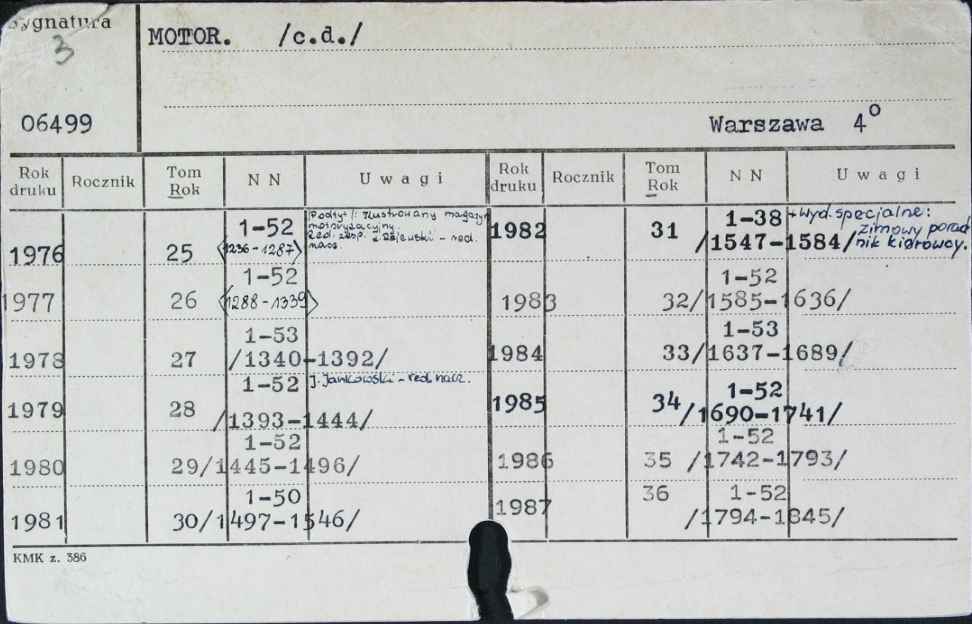 Sygnatura
3
06499
MOTOR. /c.d./
Warszawa 4o
Rok druku Rocznik Tom Rok NN Uwagi Rok druku Rocznik Tom Rok NN Uwagi
1976 25 1-52 <1236-1287> Podtyt: Ilustrowany magazyn
motoryzacyjny.
Red. zesp. - red.
nacz.
1977 26 1-52 <1288-1339>
1978 27 1-53 /1340-1392/
1979 28 1-52 /1393-1444/ J. Jankowski - red. nacz.
1980 29 1-52 /1445-1496/
1981 30 1-50 /1497-1546/
1982 31 1-38 /1547-1584/ + wyd. specjalne:
zimowy porad
nik kierowcy.
1983 32 1-52 /1585-1636/
1984 33 1-53 /1637-1689/
1985 34 1-52 /1690-1741/
1986 35 1-52 /1742-1793/
1987 36 1-52 /1794-1845/
KMK z. 386